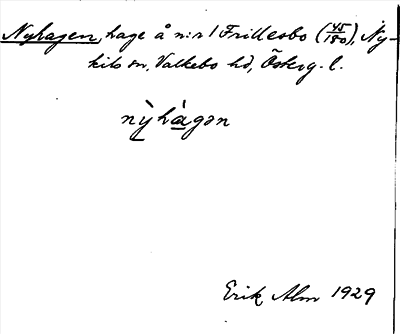 Nyhagen, hage å n:r 1 Frillesbo (45/150), Ny-
kils sn, Valkebo hd, Österg. l.
nỳhàgən
Erik Alm 1929